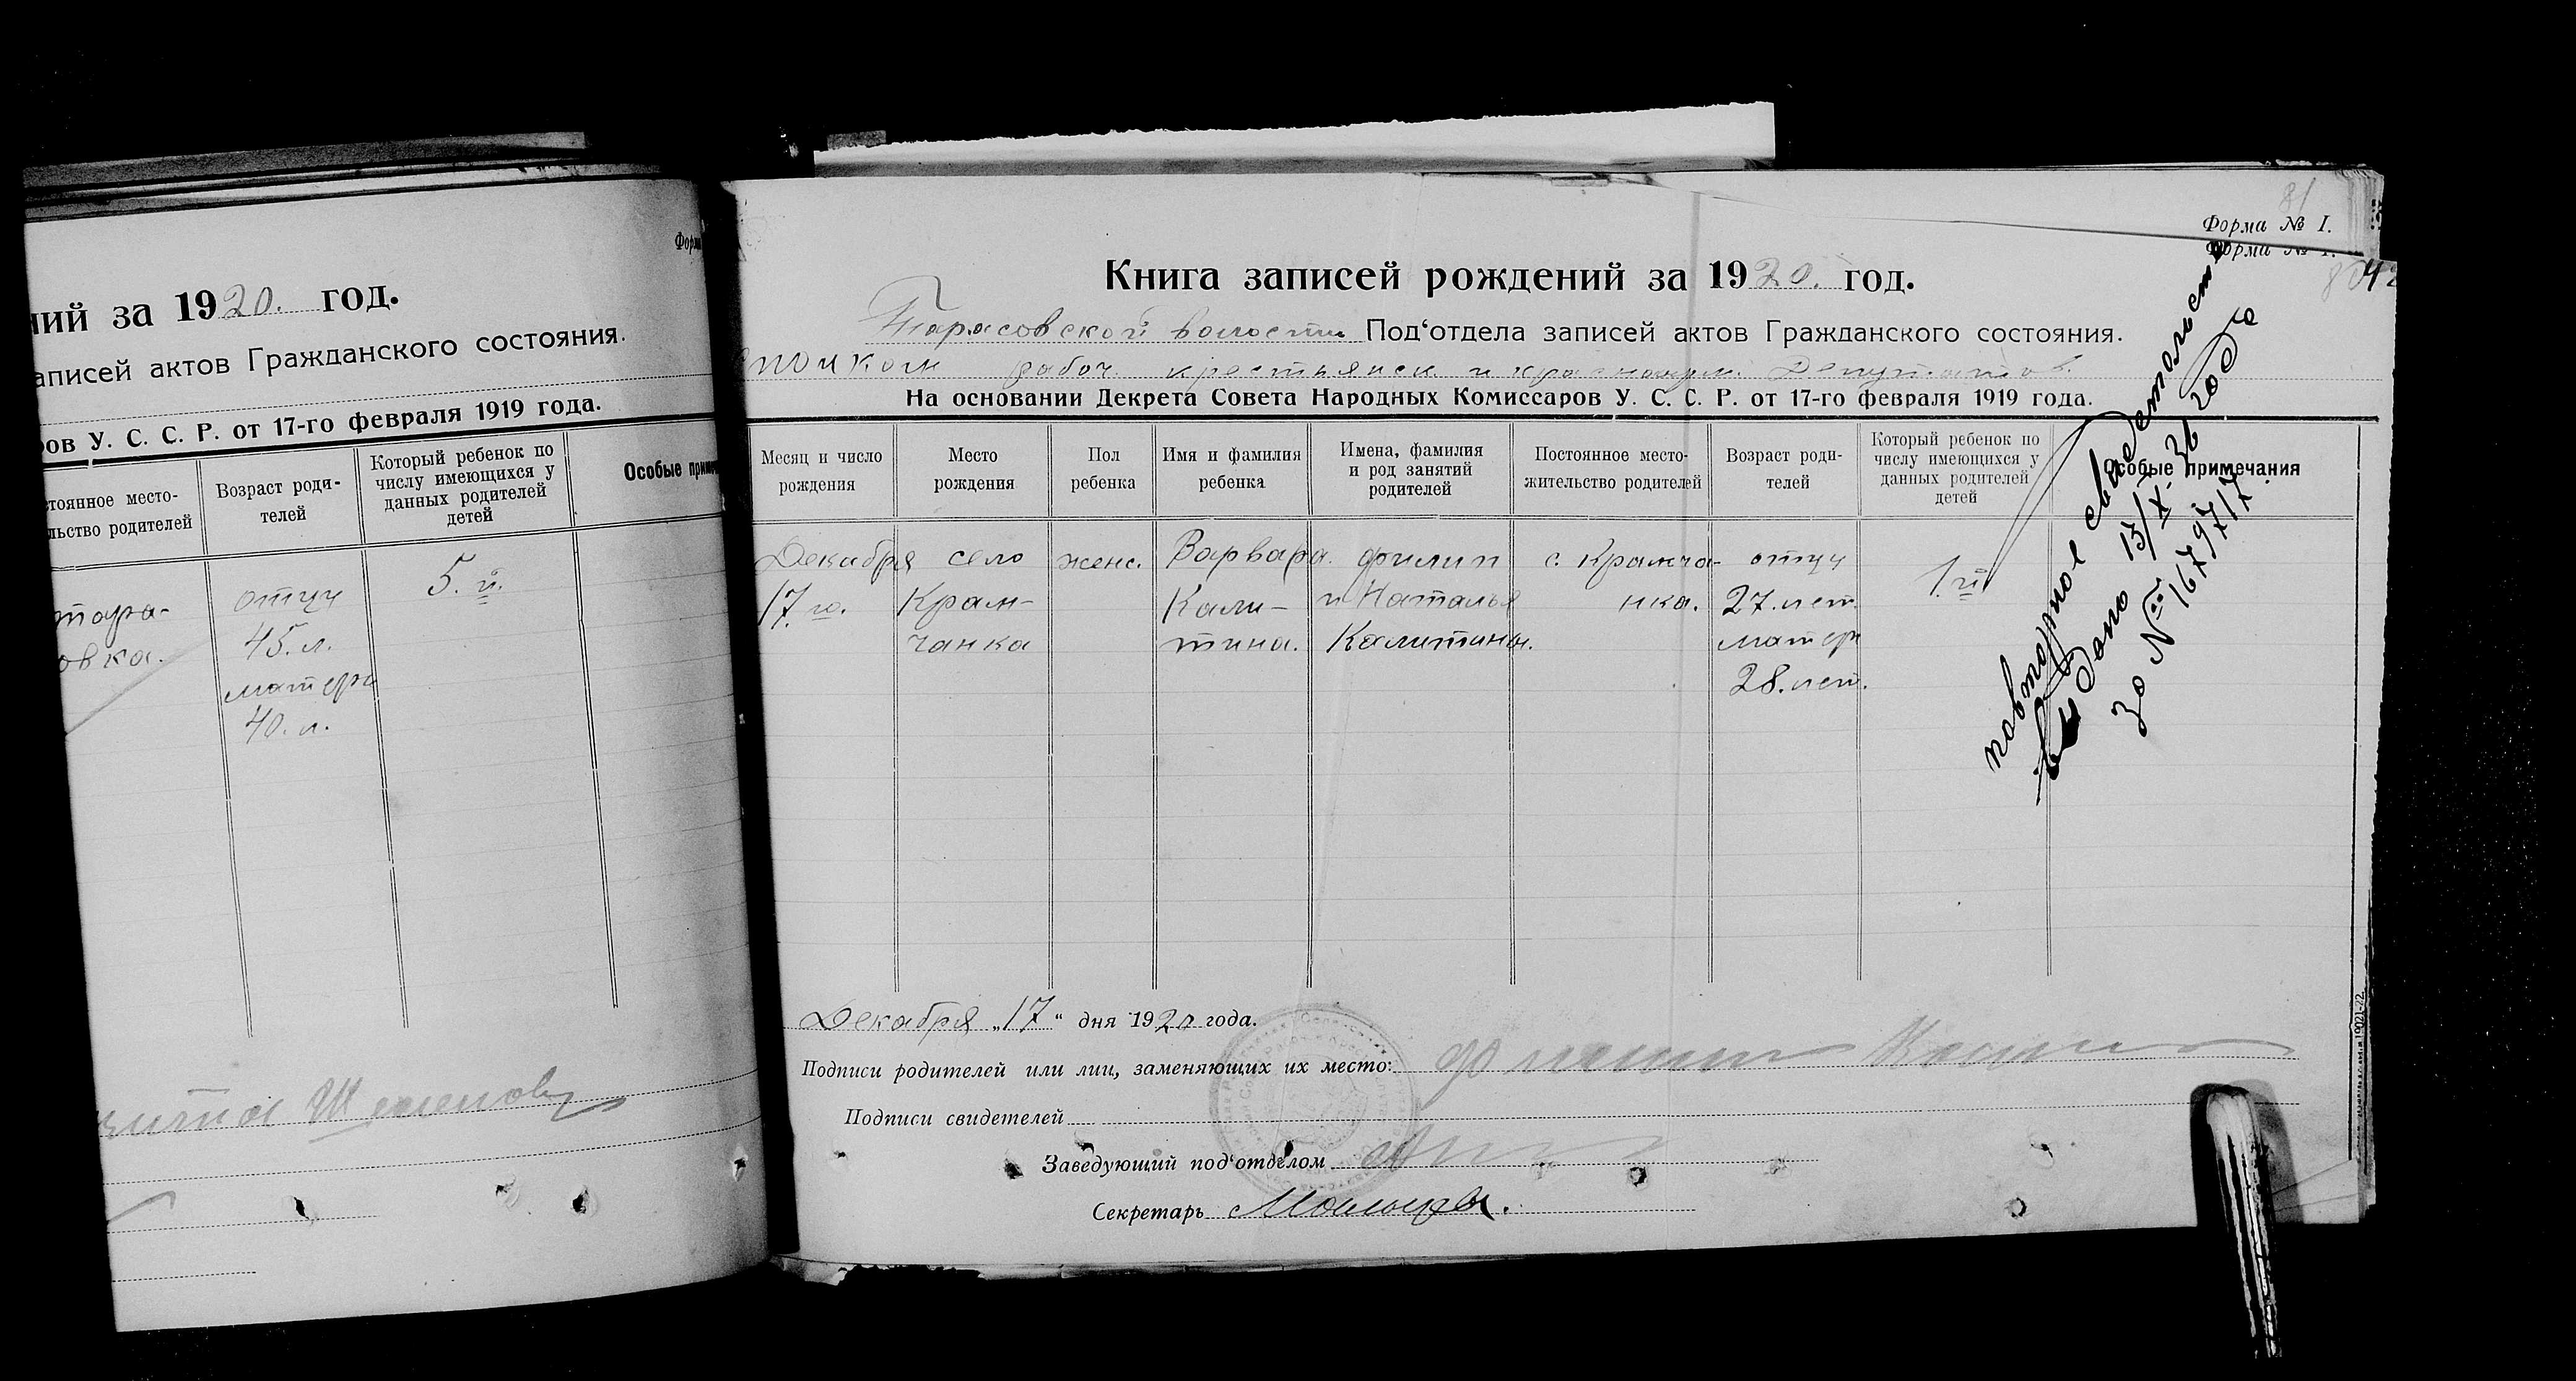 Форма
ний за 1920. год.
записей актов Гражданского состояния.
ров У. С. С. Р. от 17-го февраля 1919 года.
стоянное место-
льство родителей
Возраст роди-
телей
Который ребенок по
числу имеющихся у
данных родителей
детей
Особые приме
овка.
отцу
45. л.
матери
40. л.
5.й.
81
Форма № I.
Форма № I.
Книга записей рождений за 1920. год.
Тарасовской волости Под'отдела записей актов Гражданского состояния.
рабоч. крестьянск и красноарм. Депутатов.
На основании Декрета Совета Народных Комиссаров У. С. С. Р. от 17-го февраля 1919 года.
Месяц и число
рождения
Место
рождения
Пол
ребенка
Имя и фамилия
ребенка
Имена, фамилия
и род занятий
родителей
Постоянное место-
жительство родителей
Возраст роди-
телей
Который ребенок по
числу имеющихся у
данных родителей
детей
Особые примечания
Декабря
17го.
село
Крам-
чанка
женс.
Варвара
Кали-
тина.
Филип
и Наталья
Калитины.
с. Крамча-
нка.
отцу
27. лет.
матери
28. лет.
1.й
повторное свидетельство
выдано 13/X-36 года
за № 167971
Декабря „17“ дня 1920 года.
Подписи родителей или лиц, заменяющих их место:
Подписи свидетелей
Заведующий под'отделом
Секретарь